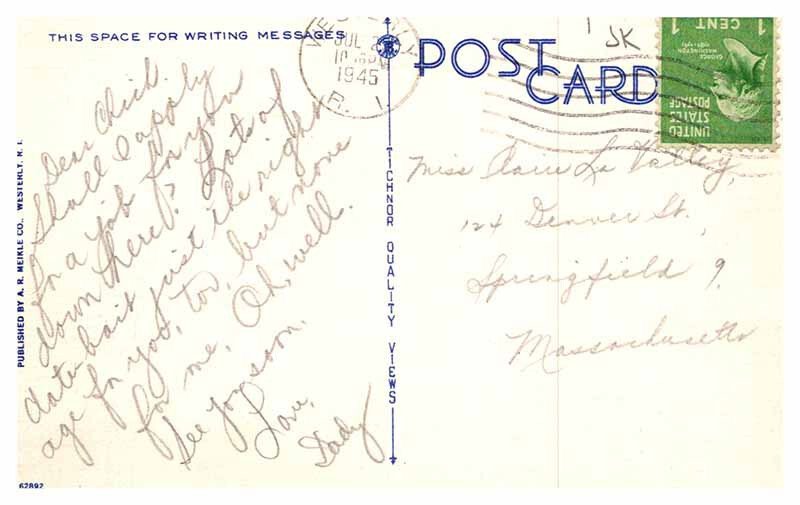 THIS SPACE FOR WRITING MESSAGES
Dear Chick.
Shall I apply
for a job for you
down here? Lots of
date-bait just the right
age for you, too, but none
for me. Oh, well.
See you soon.
Love,
Dody
PUBLISHED BY A. R. MEIKLE CO., WESTERLY, R. I.
62892
TICHNOR QUALITY VIEWS
POST CARD
WESTERLY
JUL
1945
R. I.
JK
UNITED
STATES
POSTAGE
GEORGE
WASHINGTON
1789-1797
1 CENT 1
Miss Claire La Valley,
124 Denver St.,
Springfield 9,
Massachusetts